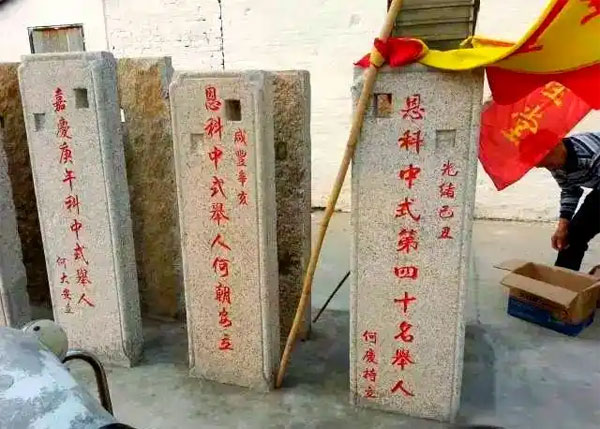 光緒己丑
恩科中式第四十名舉人
何慶持立
咸豐辛亥
恩科中式舉人何朝安立
嘉慶庚午科中式舉人
何大安立